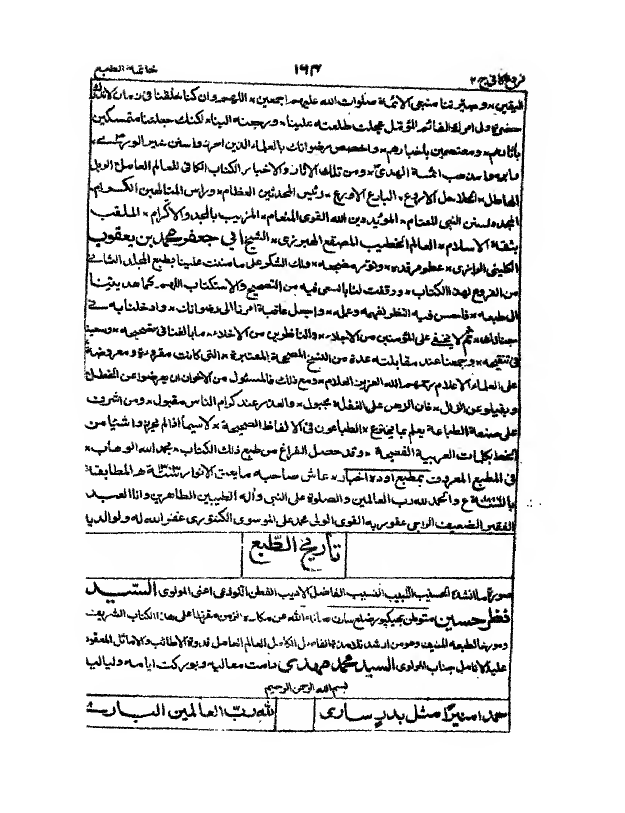 فروع کافی ج ۲ ۱۶۴ خاتمة الطبع
اليقين * وجبرتنا منجى الائمة صلوات الله عليهم اجمعين * اللهم وان كنا خلقنا فى زمان
القائم المؤمل عجلت طلعته علينا * ورجعته الينا * لكنك جعلتنا متمسكين
بآثارهم * ومعتصمين باخبارهم * واخصص برضوانك العلماء الذين
الهدى * ومن تلك الآثار والاخبار الكتاب الكافى للعالم العامل
البارع الاورع * رئيس المحدثين العظام * ورأس المتالهين الكرام
المجدد لسنن النبى * المؤيد من الله القوى المنعام * بالمجد والاكرام * الملقب
بثقة الاسلام * العالم الخطيب المصقع الهبرزى * الشيخ ابي جعفر محمد بن يعقوب
الكلينى الرازى * عطر مرقده * ونور مضجعه * ولك الشكر على ما مننت علينا بطبع المجلد الثانى
من الفروع لهذا الكتاب * ووفقت لنا بالسعى فيه من التصحيح والاستكتاب اللهم كما هديتنا
الى طبعه * فاحسن فيه النظر لفهمه وعمله * واجعل عاقبة امرنا الى رضوانك * وادخلنا به فى
جنانك * ثم لا يخفى على المؤمنين من الاجلاء * والناظرين من الاخلاء * ما بالغنا فى تصحيحه * وسعينا
فى تنقيحه * وجمعنا عند مقابلته عدة من النسخ الصحيحة المعتبرة * التى كانت مقروءة ومعروضة
على العلماء الاعلام رحمهم الله العزيز العلام * ومع ذلك فالمسئول من الاخوان ان يعرضوا عن الخطل
ويقيلوا عن الزلل * فان الرجل على الغفلة مجبول * والعذر عند كرام الناس مقبول * ومن اشرف
على صنعة الطباعة يعلم الطباعون فى الالفاظ الصحيحة * لاسيما اذا لم
الخط بكلمات العربية الفصيحة * وقد حصل الفراغ من طبع ذلك الكتاب * بحمد الله الوهاب *
فى المطبع المعروف بمطبع اوده اخبار * عاش صاحبه ما بعث الانوار المطابقة
والحمد لله رب العالمين والصلوة على النبى وآله الطيبين الطاهرين وانا العبد
الفقير الضعيف الراجى عفو ربه القوى الولى محمد على الموسوى الكنتورى غفر الله له ولوالديه
تأريخ الطبع
صورة ما انشده الحسيب اللبيب النسيب الفاضل الاديب الفطن اعنى المولوى السيد
فضل حسين متوطن صانها الله عن مكاره الزمن مقرظا على هذا الكتاب الشريف
ومورخا لطبعه المنيف وهو من ارشد تلامذة الفاضل الكامل العالم العامل قدوة الاطائب والاماثل المعقود
عليه الانامل جناب المولوى السيد محمد مهدى دامت معاليه وبوركت ايامه ولياليه
بسم الله الرحمن الرحيم
حمدا منيرا مثل بدر سارى لله رب العالمين البارئ